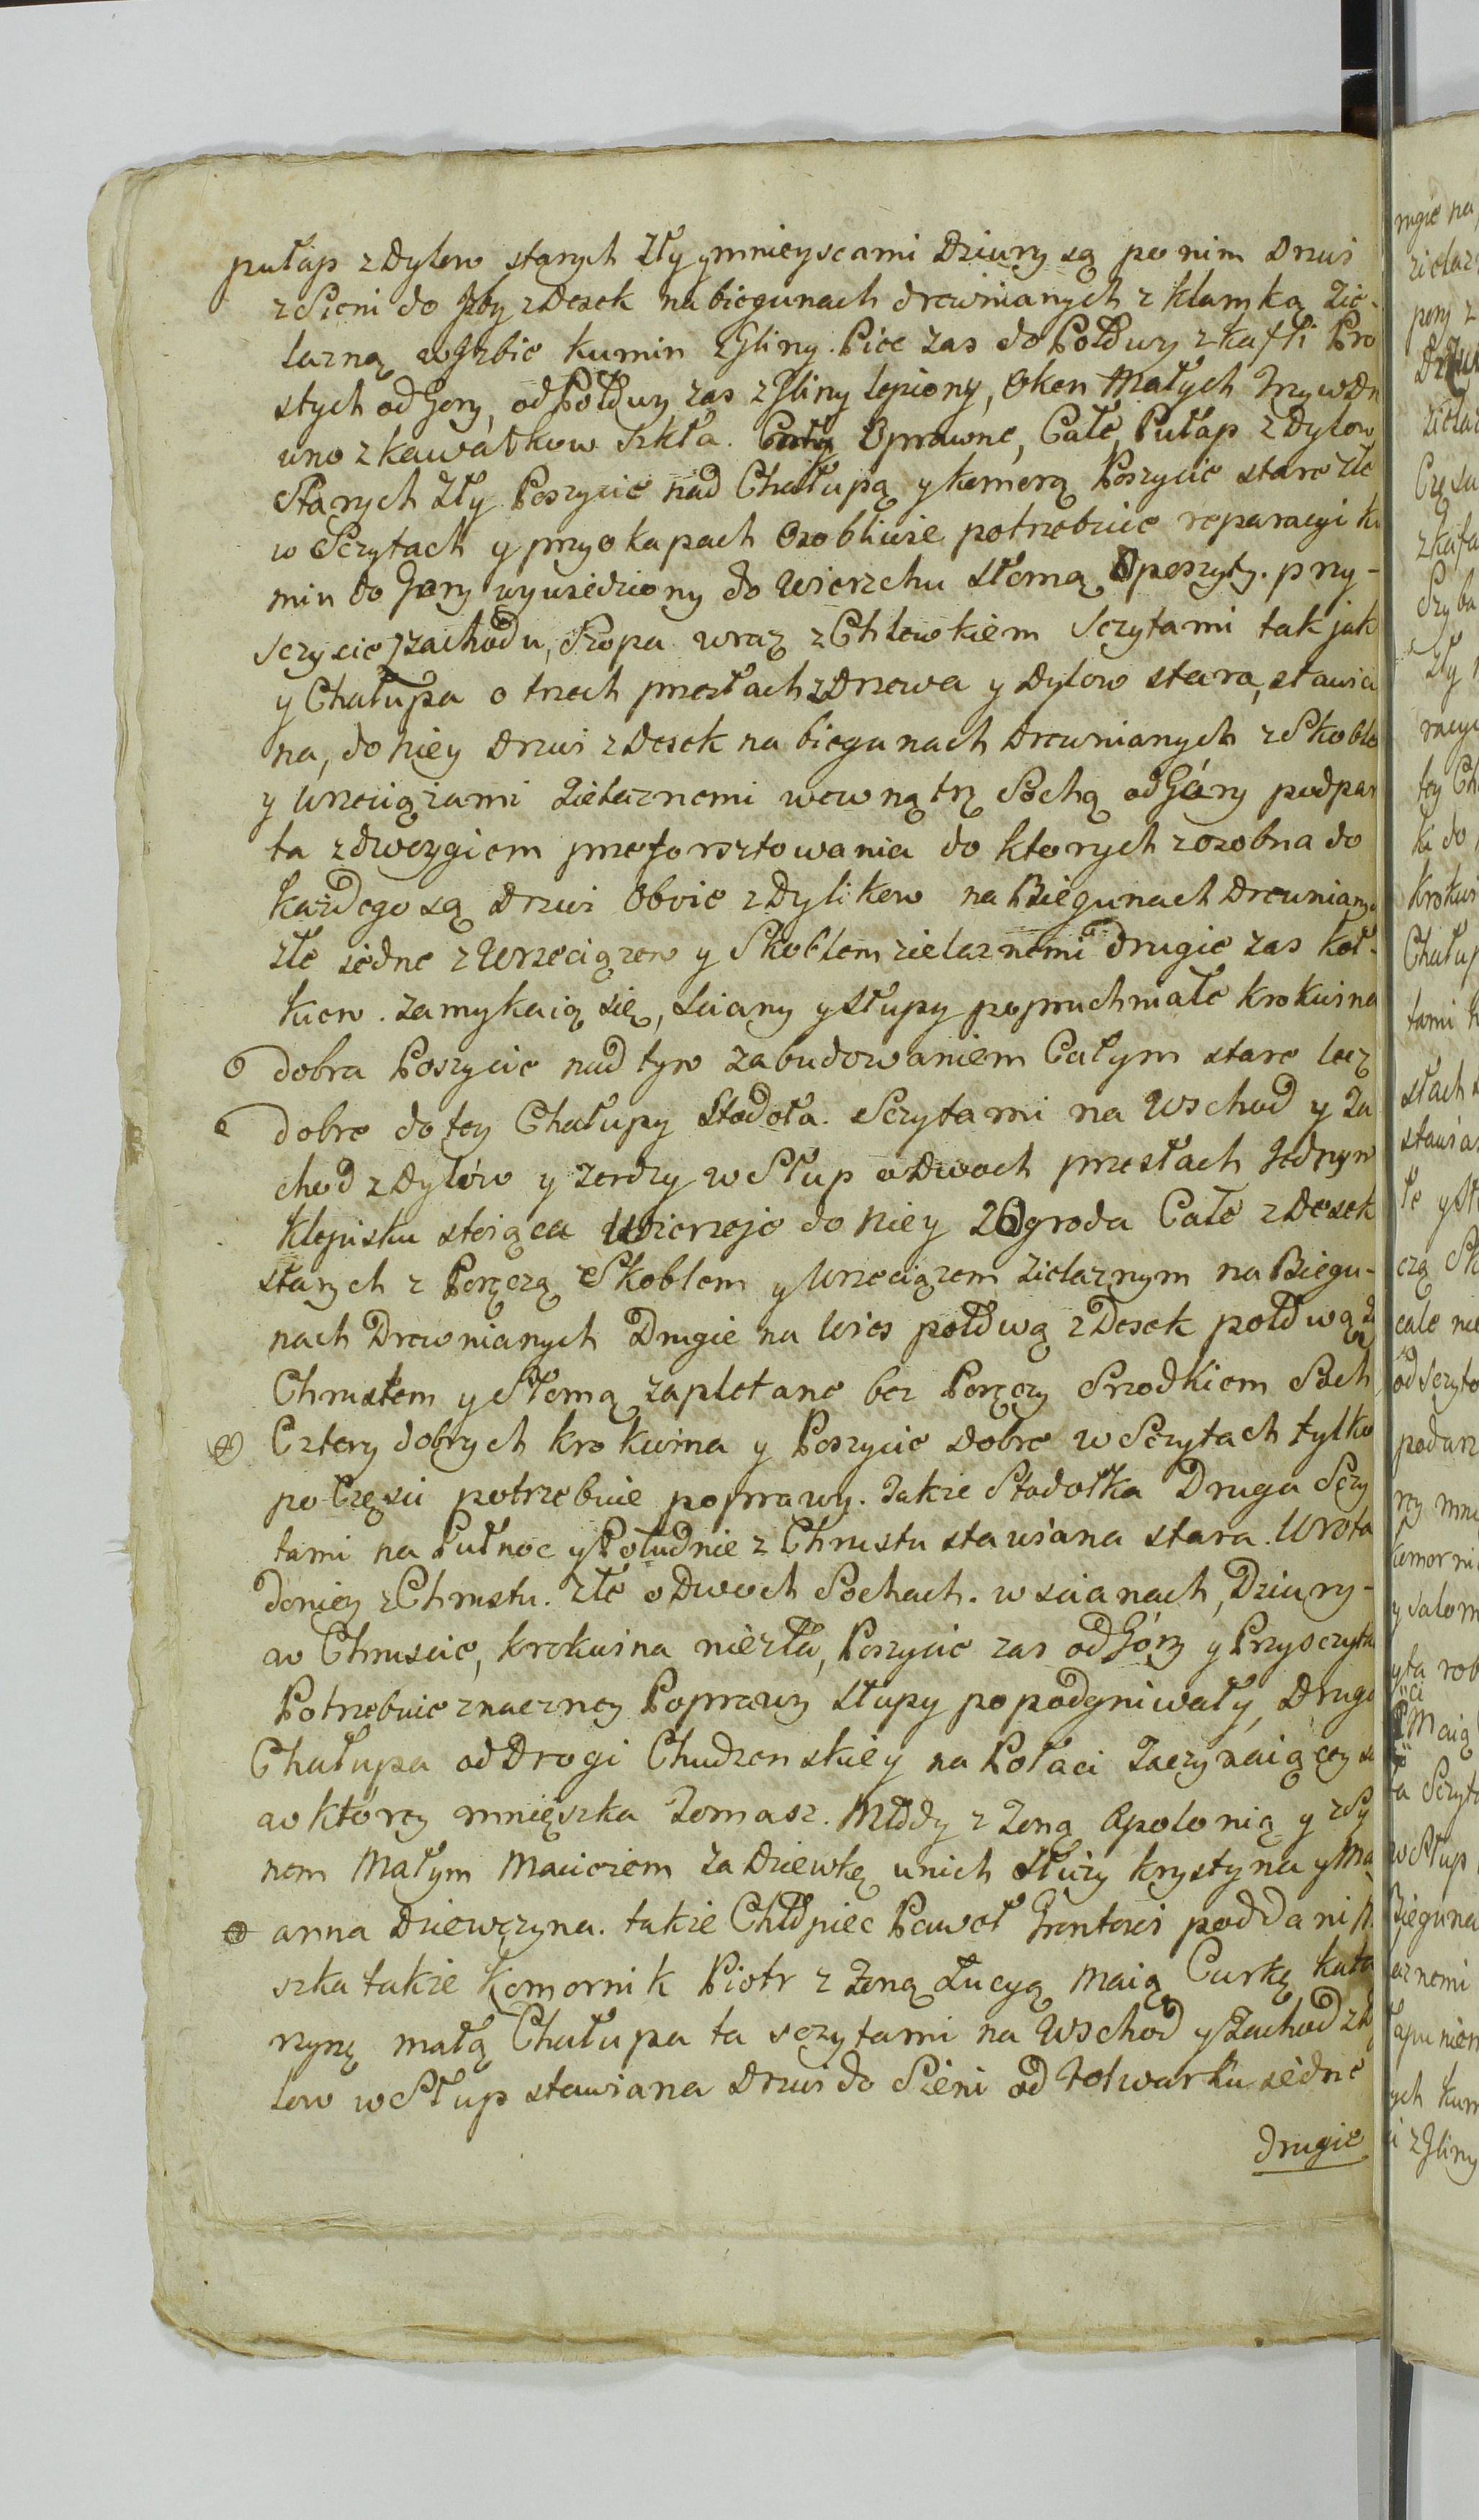 pułap z Dylow starych Zły ymnieyscami Dziury są po nim Drzwi
z Sieni do Jzby z Desek na biegunach drewnianych z klamką Zie-
lazną w Jzbie kumin z Gliny. Piec zas do Połdwy z kafli Pro
stych od Gory, od Połdwy zas z Gliny lepiony, Oken Małych Trzy w Drz
uno z kawałkow Szkła. Oprawne, Całe, Pułap z Dylow
Starych Zły Poszycie nad Chałupą y komorą Poszycie stare złe
w Sczytach y przy okapach Osobliwie potrzebuie reparacyi ku
min do Gory wywiedziony do Wierzchu słomą Oposzyty. przy-
sczycie zzachodu, Szopa wraz z Chlewkiem Sczytami tak jak
y Chałupa o trzech przesłach z Drzewa y Dylow stara, stawia
na, do niey Drzwi z Desek na biegunach Drewnianych z Skoblo
y Wrzeciążami Zielaznemi wewnątrz Sochą od Góry podpar
ta z dwoygiem przeforsztowania do ktorych zosobna do
każdego są Drzwi Oboie z Dylikow na Biegunach Drewniany
złe iedne z Wrzeciązem y Skoblem zielaznemi drugie zas koł-
kiem. zamykaią się, Sciany y Słupy poprruchniałe krokwina
dobra Poszycie nad tym zabudowaniem Całym stare lecz
dobre do tey Chałupy Stodoła. Sczytami na Wschod y Za
chod z Dylów y zerdzy w Słup o Dwoch przesłach Jednym
klepisku stoiąca Wierzeje do niey z Ogroda Całe z Desek
starych z Poręczą z Skoblem y Wrzeciązem zielaznym na Biegu-
nach Drewnianych Drugie na wies połdwą z Desek połdwą z
Chrustem y Słomą zapletane bez Poręczy Srzodkiem Soch
Cztery dobrych krokwina y Poszycie Dobre w Sczytach tylko
po Częsci potrzebuie poprawy. Takze Stodołka Druga Sczy
tami na Pułnoc y Południe z Chrustu stawiana stara. Wrota
doniey z Chrustu. złe o Dwoch Sochach. w scianach, Dziury-
w Chruscie, krokwina niezła, Poszycie zas od Góry y Przysczyta
Potrzebuie znaczney Poprawy słupy popodgniwały, Druga
Chałupa od Drogi Chudzenskiey na Połaci Zaczynaiącey si
w ktorey mnięszka Tomasz. Młody z Zoną Apolonią y z Sy
nem Małym Macieiem Za Dziewkę unich służy krystyna y Ma
anna Dziewczyna. takze Chłopiec Paweł Grontowi poddani M.
szka takze komornik Piotr z Zoną Łucyą Maią Curkę kata
rzynę małą Chałupa ta sczytami na Wschod y Zachod z Dy
low w Słup stawiana Drzwi do Sieni od Folwarku iedne
drugie